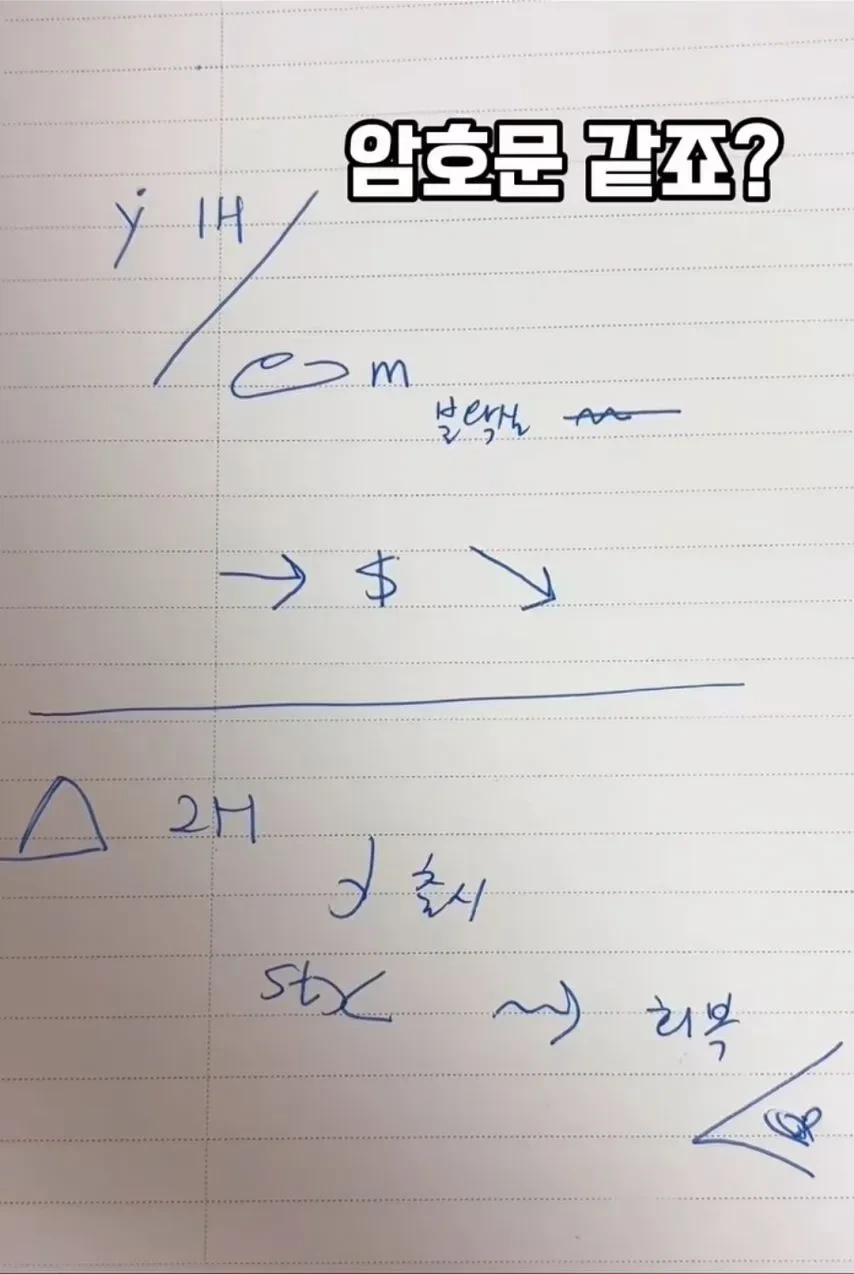 암호문 같죠?
ẏ 1H
m
불확실
→ $ ↘
△ 2H
출시
stx 회복